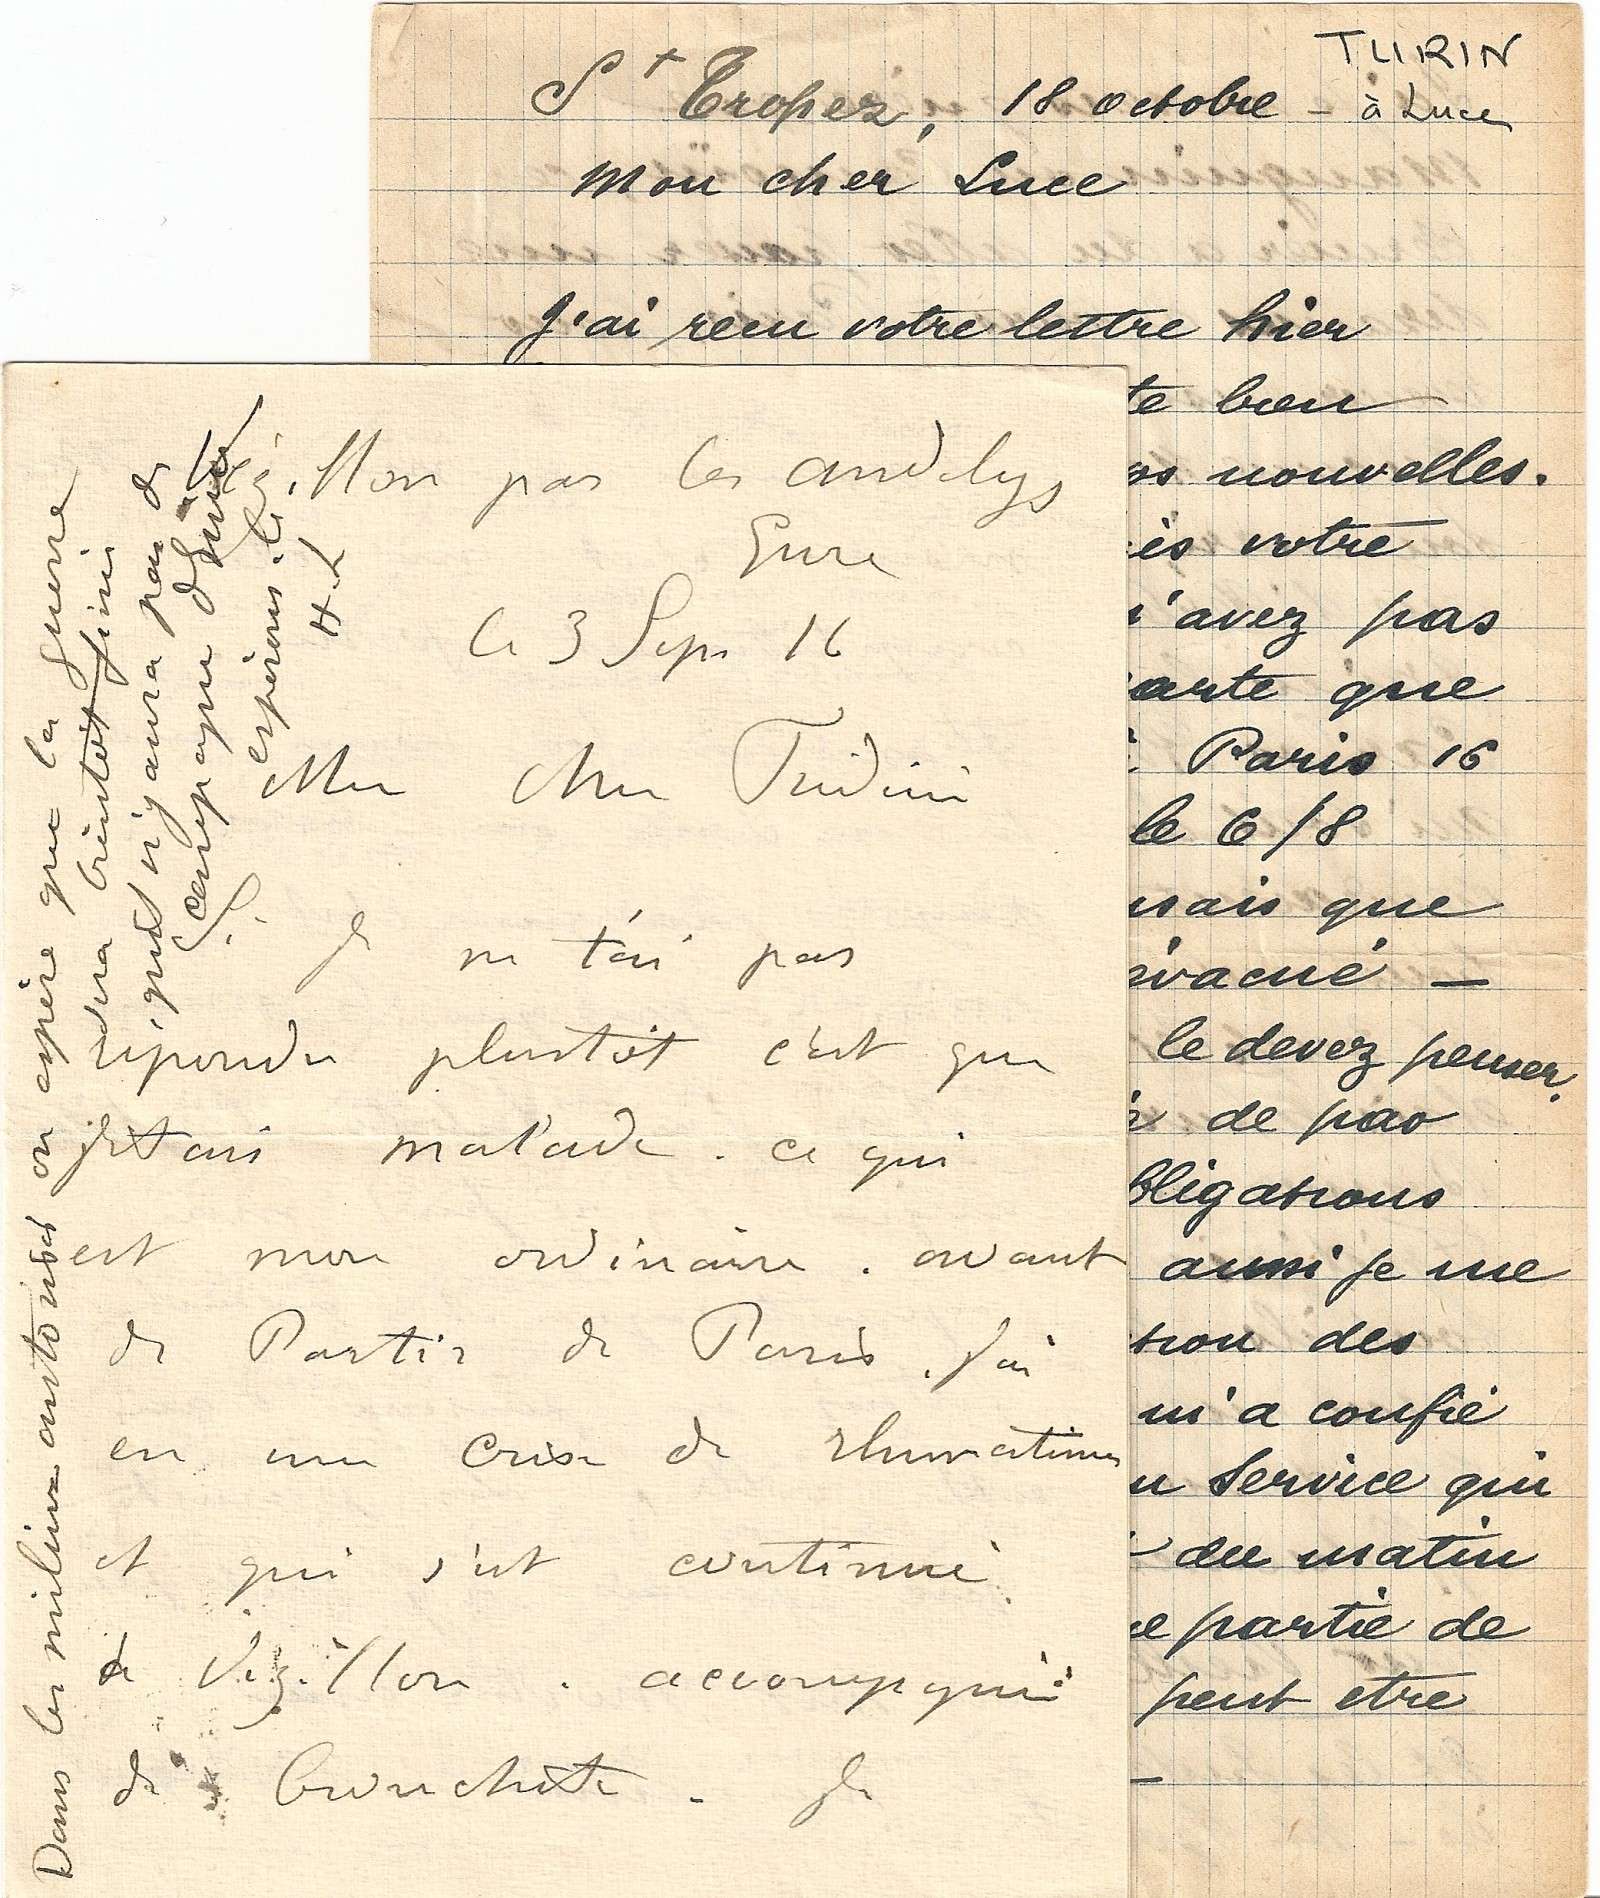 TURIN
à Luce
St Tropez, 18 octobre –
Mon cher Luce
J'ai recu votre lettre hier
te bien
os nouvelles.
is votre
n'avez pas
carte que
Paris 16
le 6/8
nsais que
évacué –
le devez penser.
de pas
bligations
aussi je me
tion des
m'a confié
u Service qui
du matin
e partie de
peut etre
–
Vézillon par les andelys
Eure
le 3 Sept 16
Mon cher
Je ne t'ai pas
répondu plustôt c'est que
j'etais malade. ce qui
est mon ordinaire. avant
de Partir de Paris. j'ai
eu une crise de rhumatismes
et qui s'est continué
à Vézillon. accompagné
de bronchite. Je
Dans les milieux autorisés on espère que la guerre
sera bientôt finie
qu'il n'y aura pas de
campagne d'hiver
espérons-le
H.L